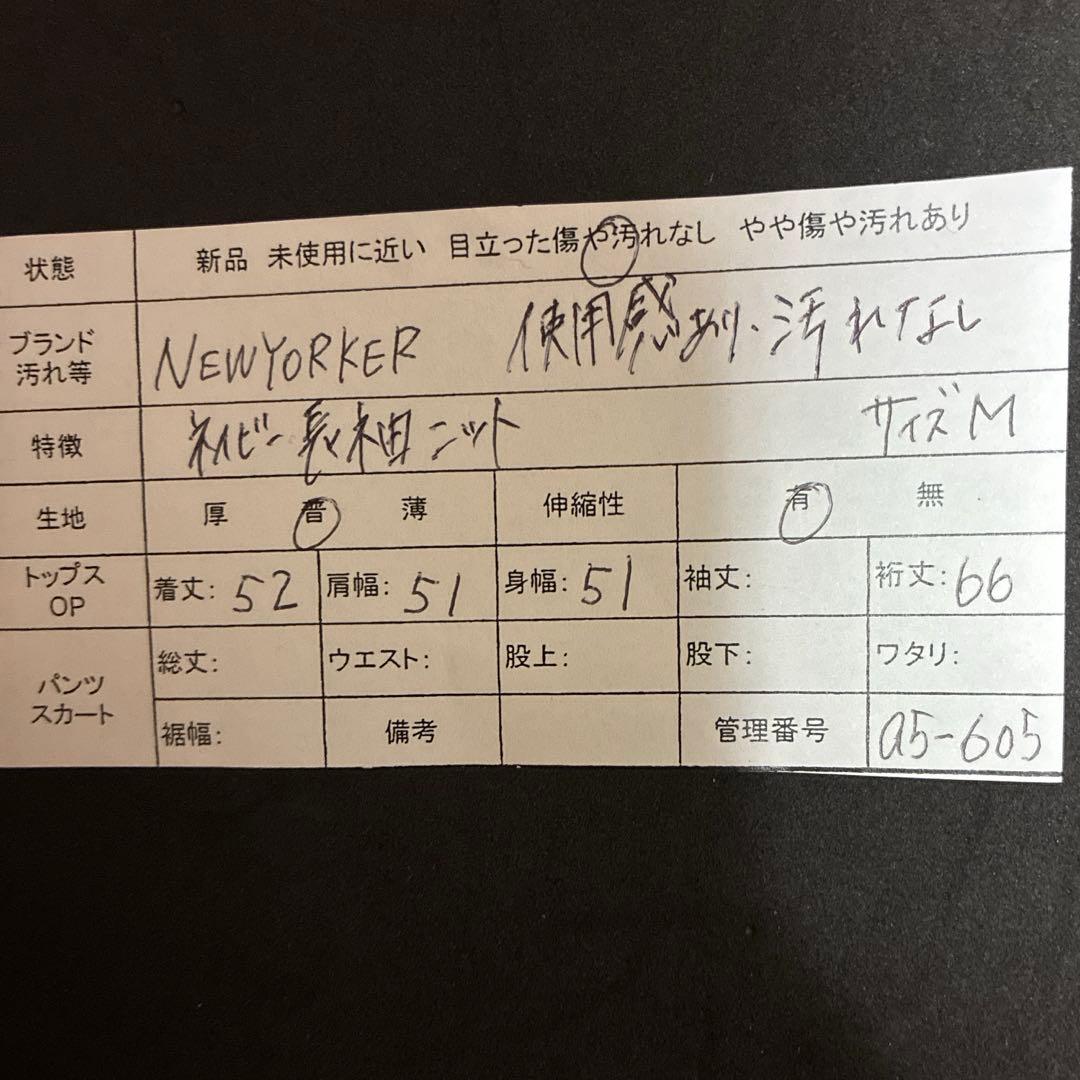 状態 新品 未使用に近い 目立った傷や汚れなし やや傷や汚れあり
ブランド 汚れ等 NEWYORKER 使用感あり、汚れなし
特徴 ネイビー長袖ニット サイズM
生地 厚 普 薄 伸縮性 有 無
トップス OP 着丈: 52 肩幅: 51 身幅: 51 袖丈: 裄丈: 66
パンツ スカート 総丈: ウエスト: 股上: 股下: ワタリ:
裾幅: 備考 管理番号 a5-605